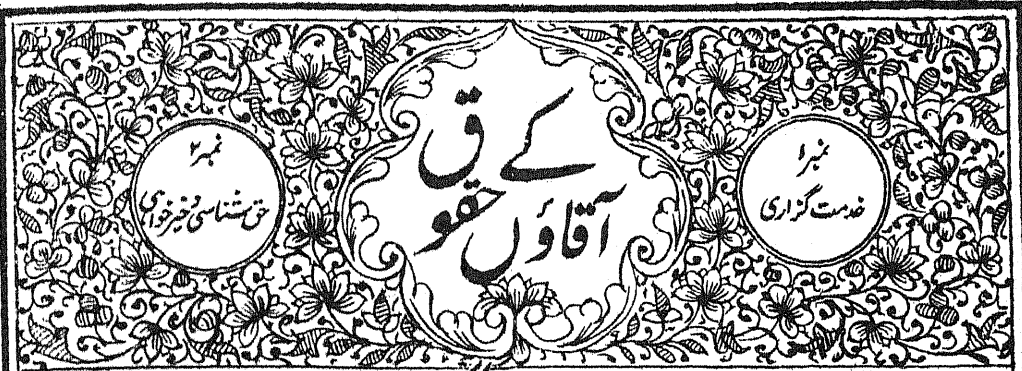 نمبر ۱
خدمت گزاری
آقاؤں کے حقوق
نمبر ۲
حق شناسی و خیر خواہی